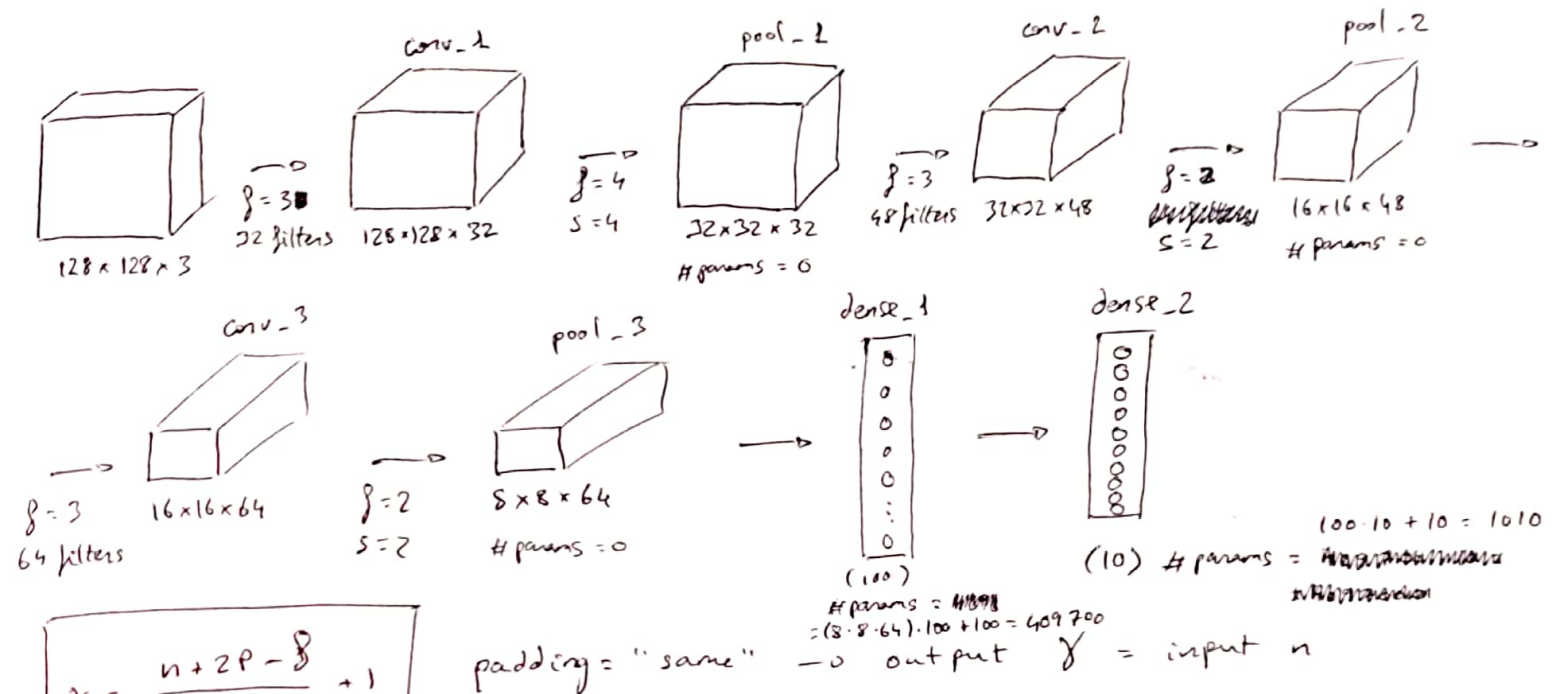 conv_1
pool_1
conv_2
pool_2
f=3
32 filters
f=4
s=4
f=3
48 filters
f=2
s=2
128×128×3
128×128×32
32×32×32
# params = 0
32×32×48
16×16×48
# params = 0
conv_3
pool_3
dense_1
dense_2
f=3
64 filters
16×16×64
f=2
s=2
8×8×64
# params = 0
(100)
# params =
=(8·8·64)·100+100=409700
100·10+10=1010
(10) # params =
n+2P-f
+1
padding="same" → output γ = input n